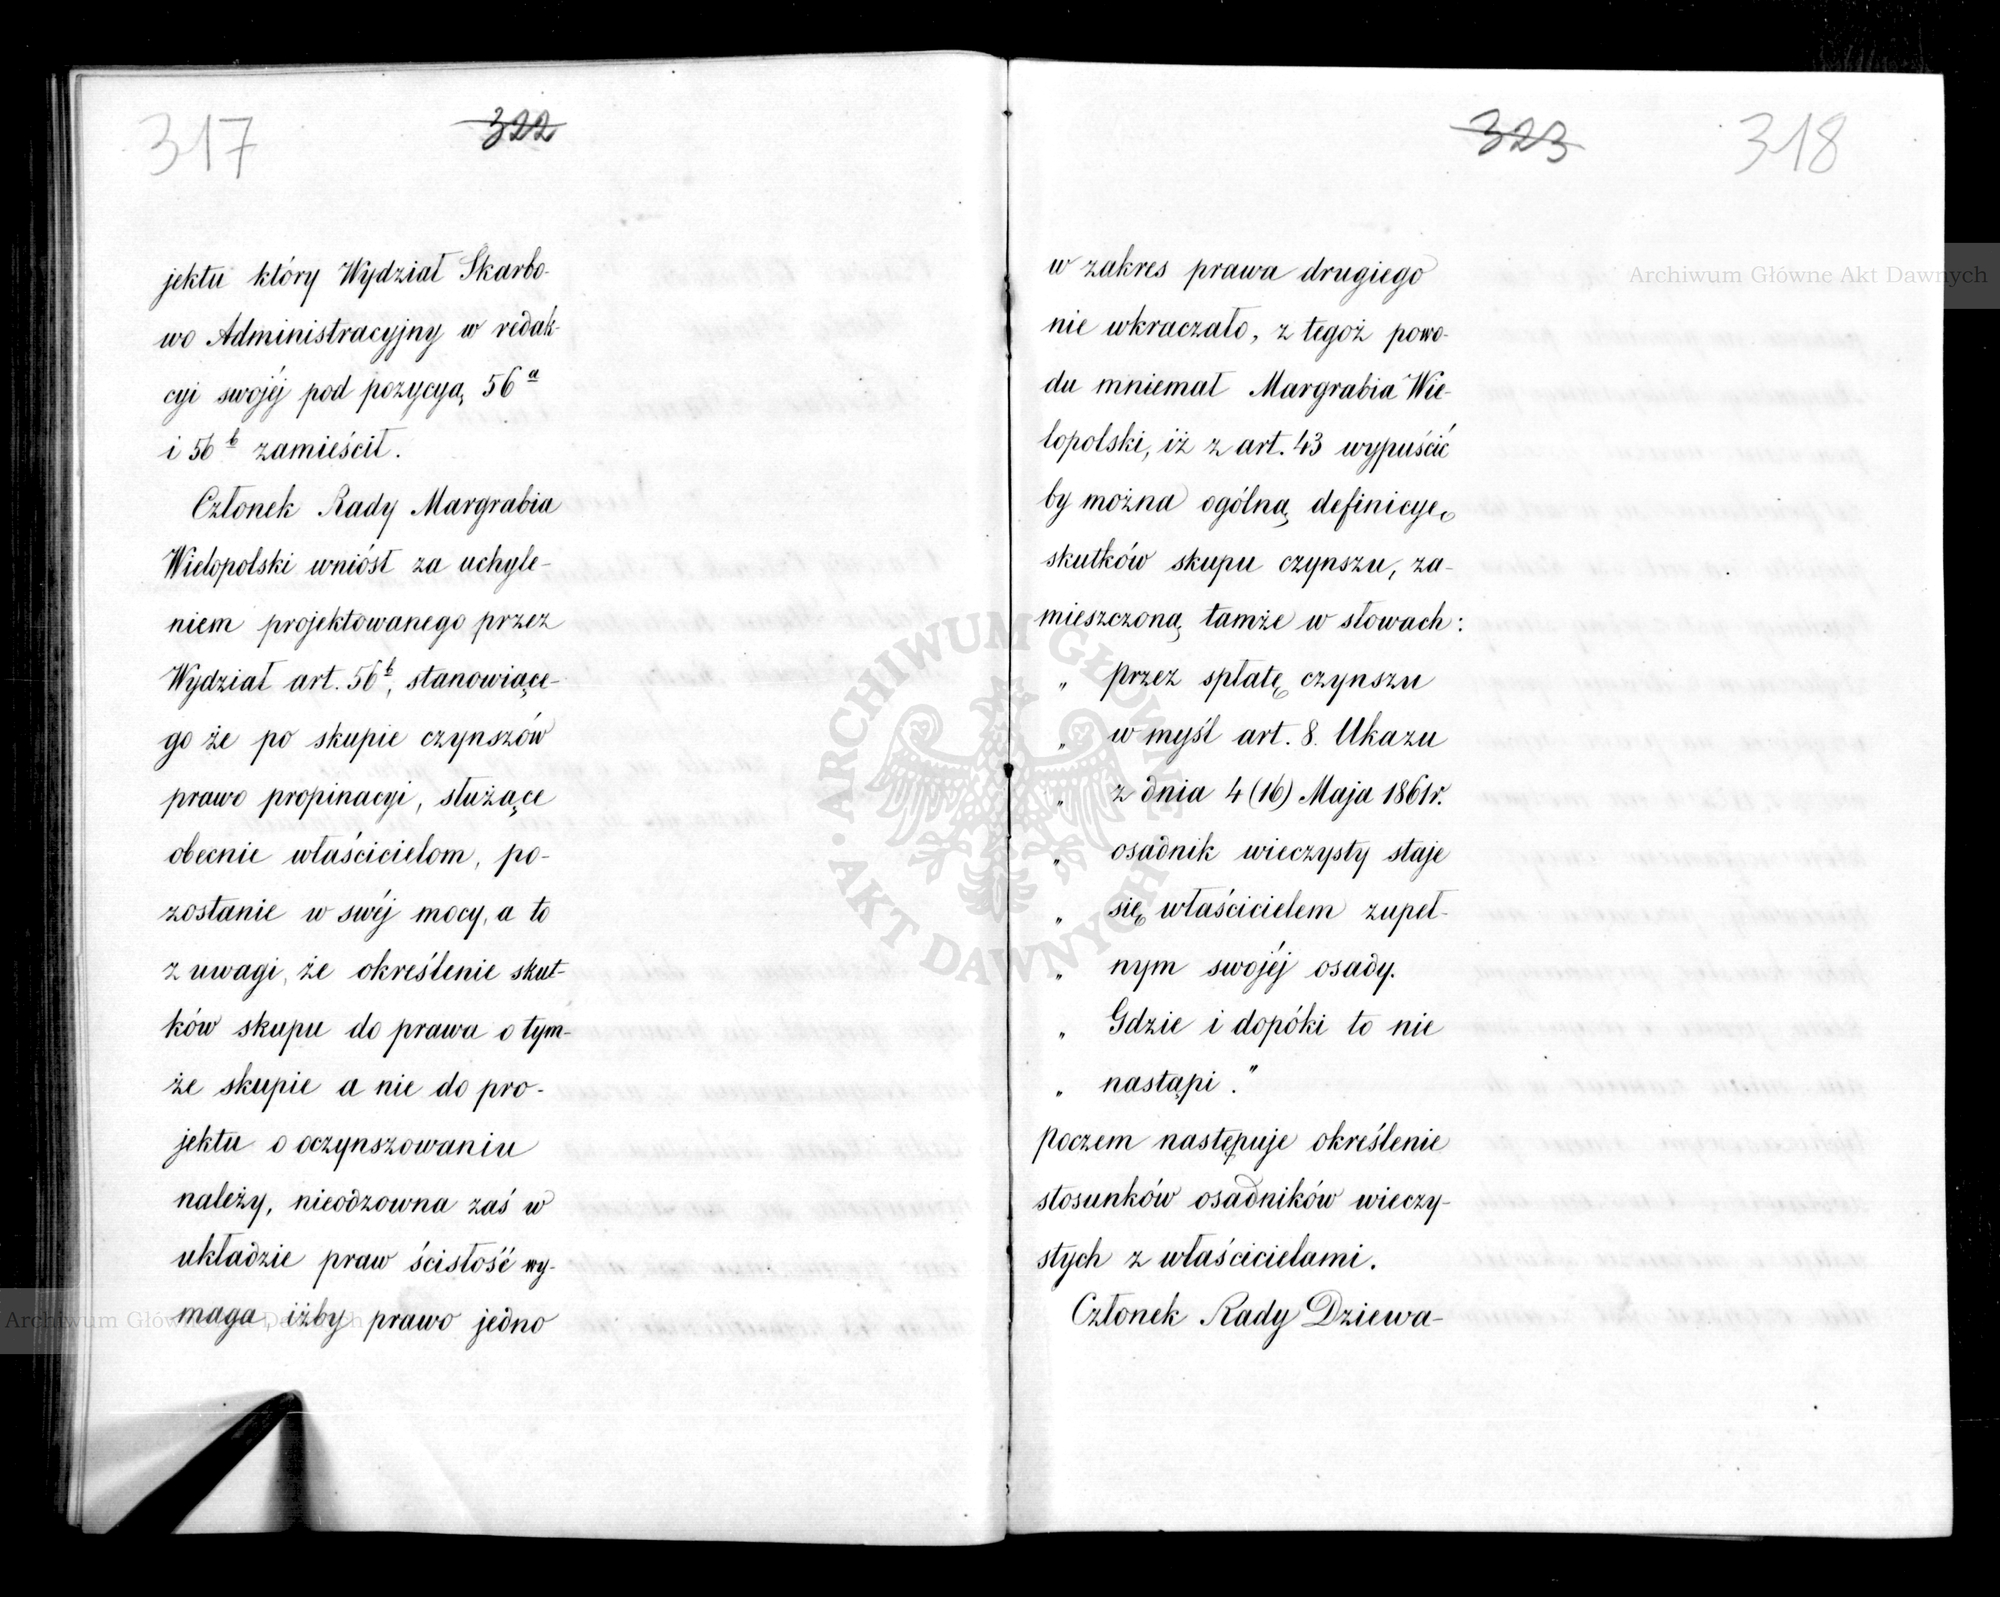 317
322
jektu który Wydział Skarbo-
wo Administracyjny w redak-
cyi swojéj pod pozycyą 56 a
i 56 b zamieścił.
Członek Rady Margrabia
Wielopolski wniósł za uchyle-
niem projektowanego przez
Wydział art. 56 b, stanowiące-
go że po skupie czynszów
prawo propinacyi, służące
obecnie właścicielom, po-
zostanie w swéj mocy, a to
z uwagi, że określenie skut-
ków skupu do prawa o tym-
że skupie a nie do pro-
jektu o oczynszowaniu
należy, nieodzowna zaś w
układzie praw ścisłość wy-
maga iżby prawo jedno
323
318
w zakres prawa drugiego
nie wkraczało, z tegoż powo-
du mniemał Margrabia Wie-
lopolski, iż z art. 43 wypuścić
by można ogólną definicyę
skutków skupu czynszu, za-
mieszczoną tamże w słowach:
„ przez spłatę czynszu
„ w myśl art. 8. Ukazu
„ z dnia 4 (16) Maja 1861 r.
„ osadnik wieczysty staje
„ się właścicielem zupeł-
„ nym swojéj osady.
„ Gdzie i dopóki to nie
„ nastąpi."
poczem następuje określenie
stosunków osadników wieczy-
stych z właścicielami.
Członek Rady Dziewa-
Archiwum Główne Akt Dawnych
Archiwum Główne Akt Dawnych
ARCHIWUM GŁÓWNE AKT DAWNYCH